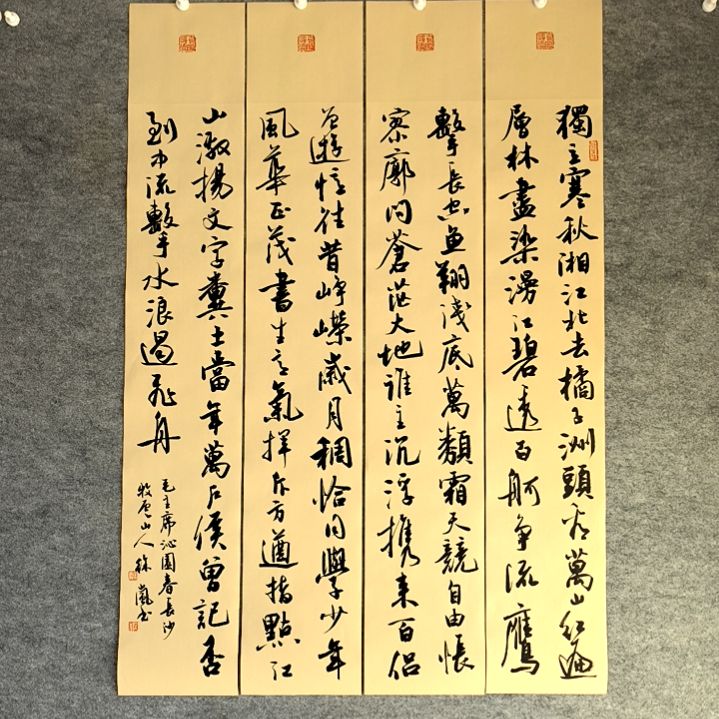 獨立寒秋湘江北去橘子洲頭看萬山红遍
層林盡染漫江碧透百舸争流鷹
擊長空魚翔淺底萬類霜天競自由悵
寥廓问蒼茫大地谁主沉浮携来百侣
曾遊憶往昔峥嶸歲月稠恰同學少年
風華正茂書生意氣揮斥方遒指點江
山激揚文字糞土當年萬户侯曾記否
到中流擊水浪遏飞舟
毛主席沁園春長沙
山人徐嵐书